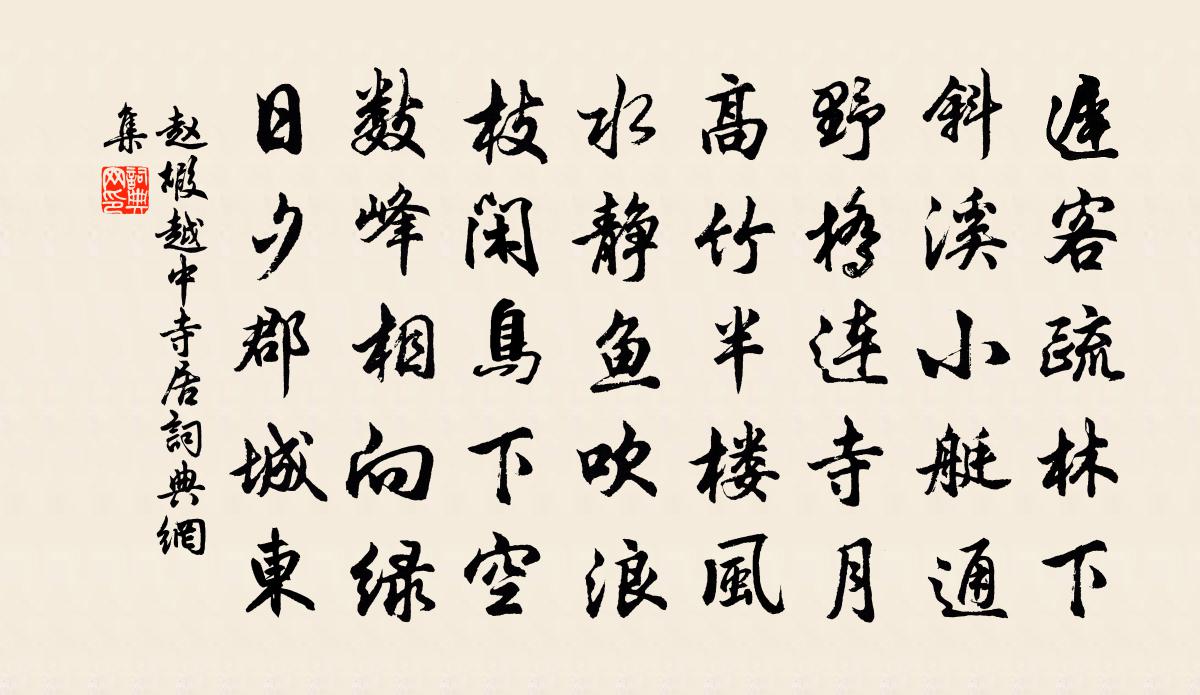 遲客疏林下
斜溪小艇通
野橋連寺月
高竹半楼風
水静鱼吹浪
枝閑鳥下空
数峰相向緑
日夕郡城東
赵嘏越中寺居詞典網
集
詞典
网印